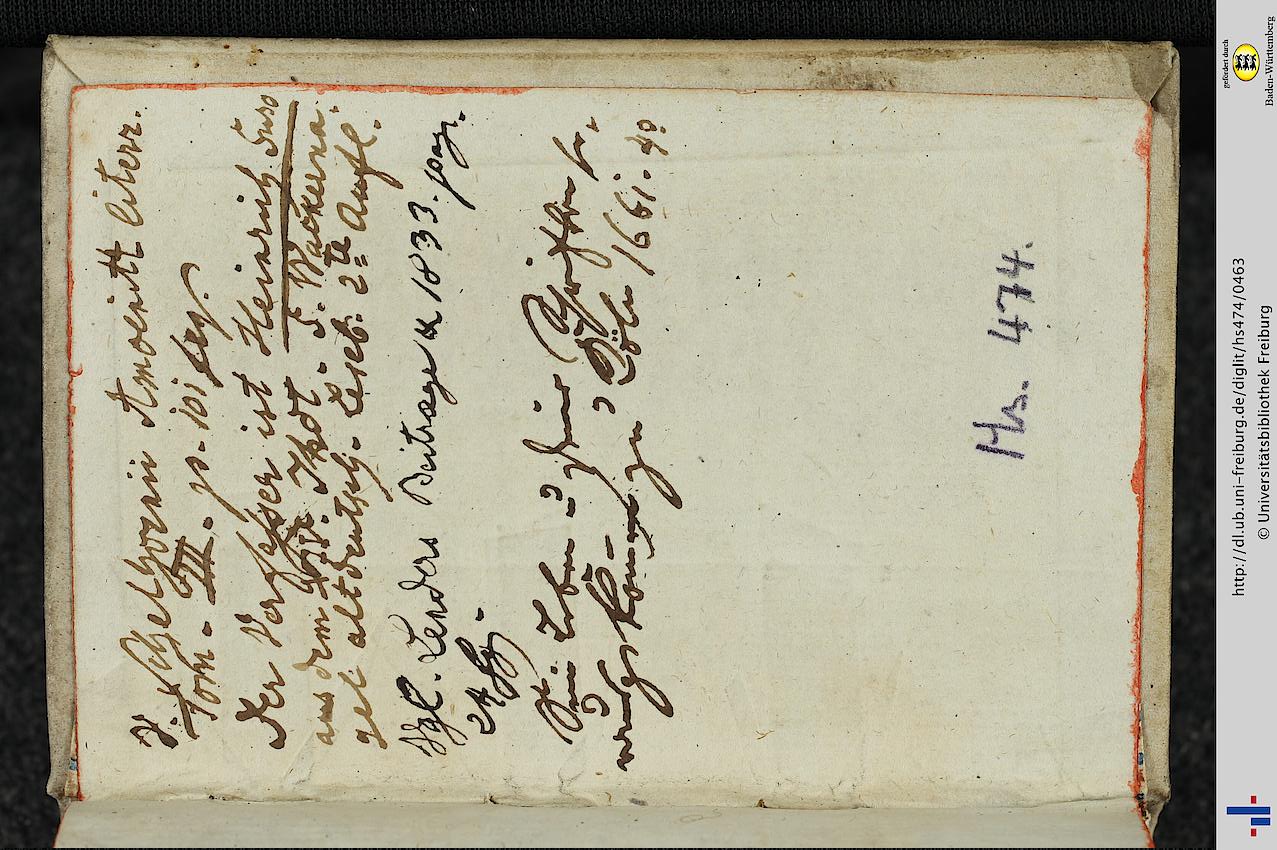 V. Schelhornii Amoenitt literr.
Tom. VIII. p. 101 seq.
Der Verfasser ist Heinrich Suso
aus dem XIV. Jhdt. S. Wackerna:
gel altdeutsch. Leseb. 2te Aufl.
Vgl. Leaders Beiträge 1833. pag.
Leben Schriften
Cöln 1661. 4o.
Hs. 474.
gefördert durch
Baden-Württemberg
http://dl.ub.uni-freiburg.de/diglit/hs474/0463
© Universitätsbibliothek Freiburg